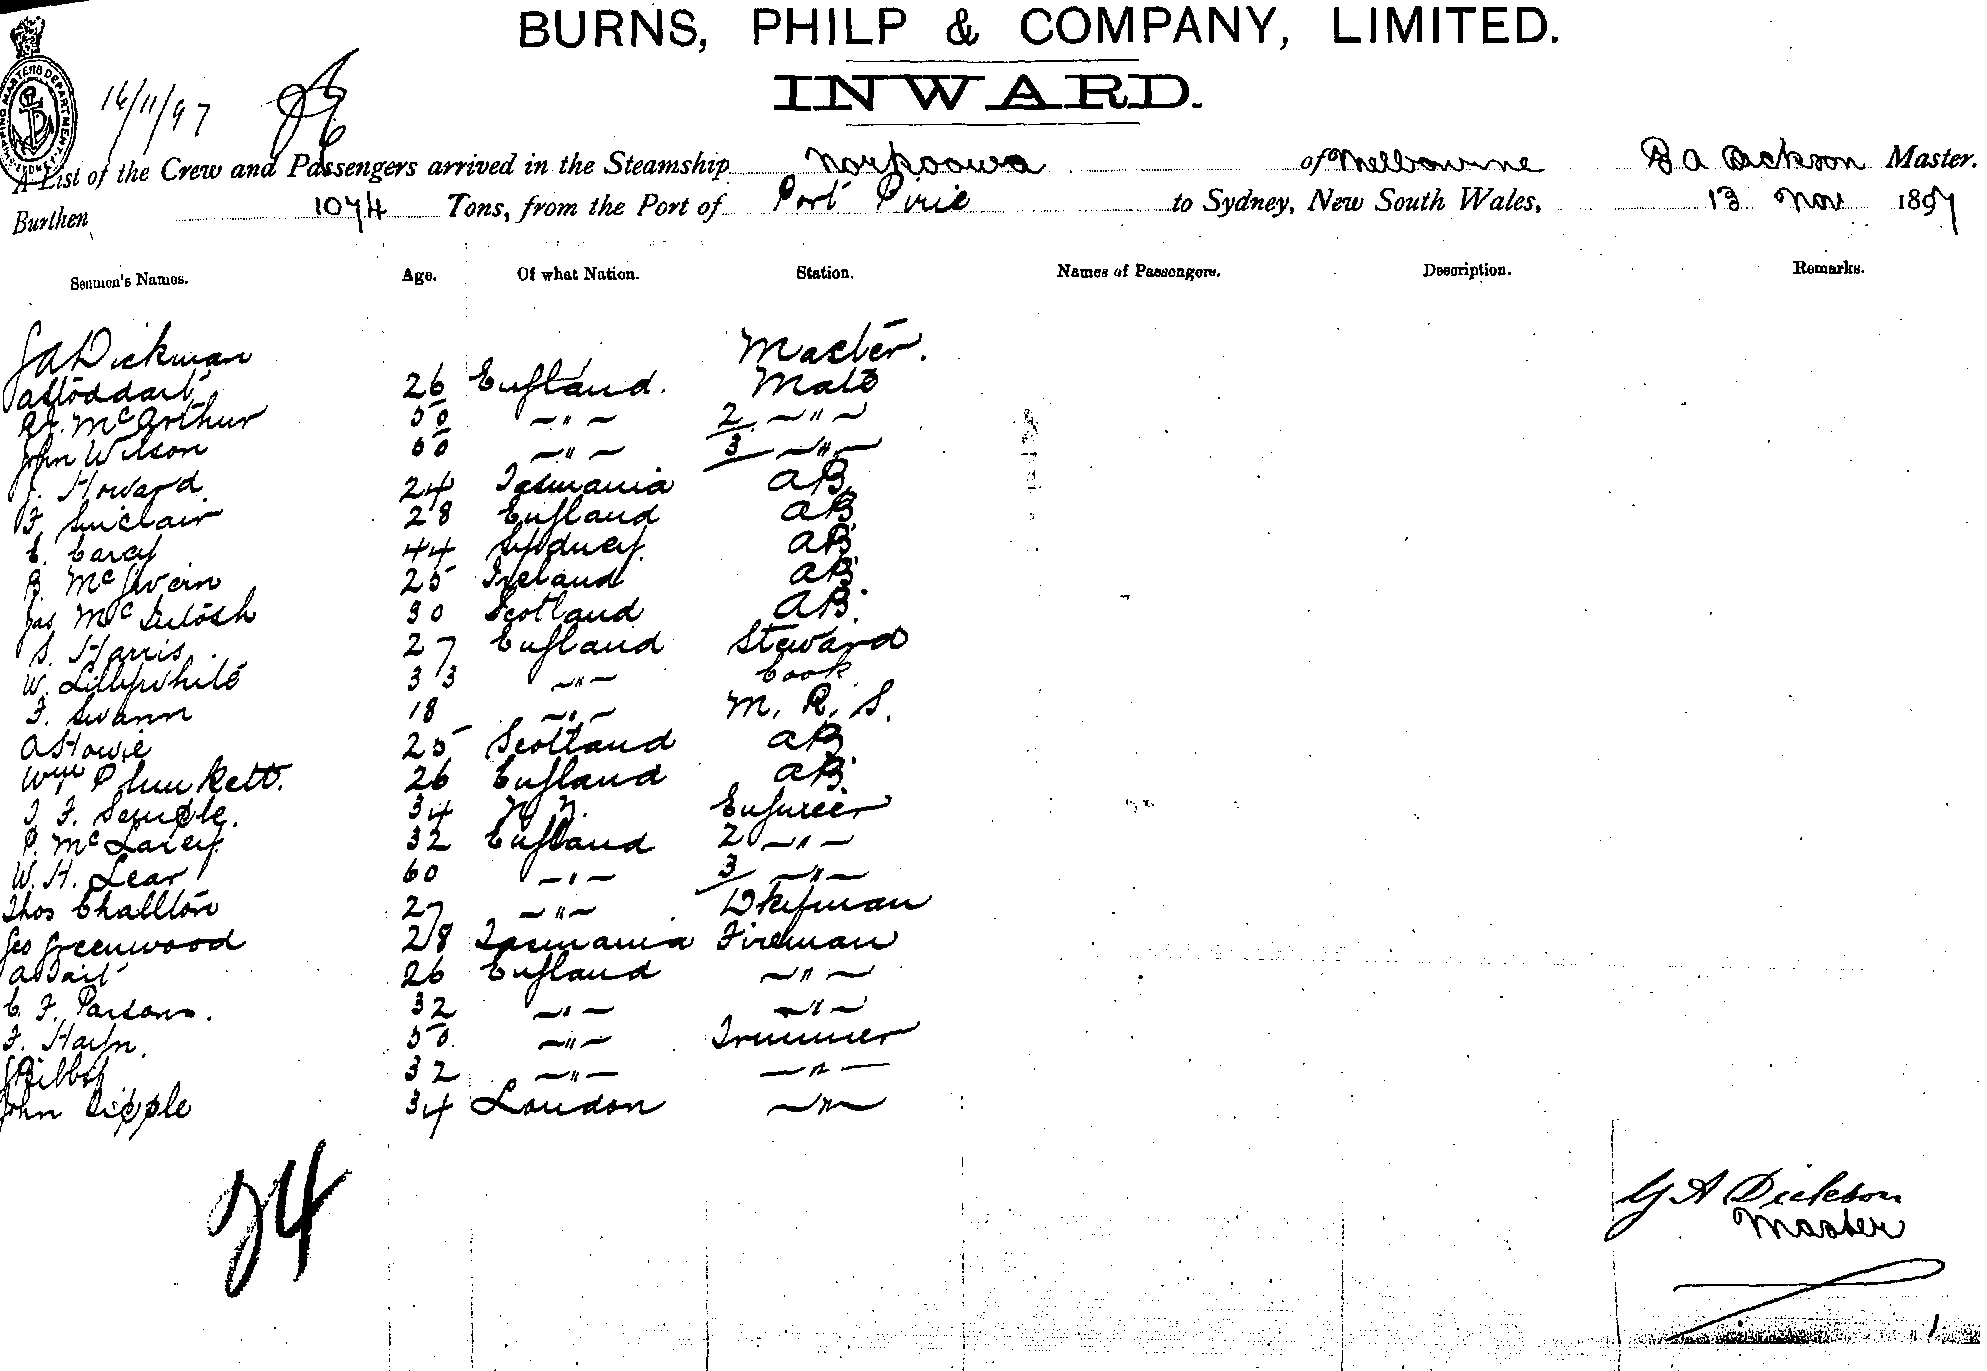 BURNS, PHILP & COMPANY, LIMITED.
INWARD.
16/11/97
A List of the Crew and Passengers arrived in the Steamship Norkoowa of Melbourne Master.
Burthen 1074 Tons, from the Port of Port Pirie to Sydney, New South Wales, 13 Nov 1897
Seamen's Names. Age. Of what Nation. Station. Names of Passengers. Description. Remarks.
Dickman Master.
A Stoddart 26 England. Mate
McArthur 50 —"— 2 —"—
John Wilson —"— 3 —"—
J. Howard. 24 Tasmania AB
F. Sinclair 28 England AB
C. Carey 44 Sydney. AB
B. McGivern 25 Ireland AB
Jas McIntosh 30 Scotland AB.
S. Harris. 27 England Steward
W. Lillywhite 33 —"— Cook
F. Swann 18 —"— M. R. S.
A Howie 25 Scotland AB
Wm Plunkett. 26 England AB.
J. F. Semple. 34 Engineer
P. McLarey 32 England 2 —"—
W. H. Lear 60 —"— 3 —"—
Thos Challton 27 —"— Dkyman
Geo Greenwood 28 Tasmania Fireman
A Tait 26 England —"—
C. F. Parsons. 32 —"— —"—
F. 50 —"— Trimmer
32 —"— —"—
John Sipple 34 London —"—
24
G A Dickson
Master